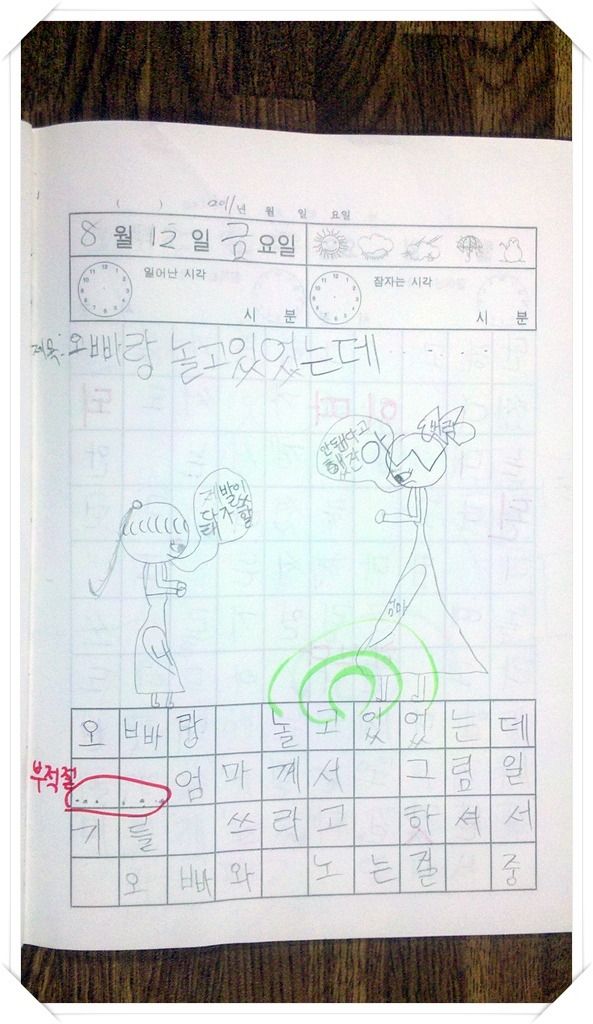 ( ) 2011 년 월 일 요일
8 월 12 일 금 요일
일어난 시각
시 분
잠자는 시각
시 분
제목: 오빠랑 놀고있었는데 . . . . . .
안됀다고
했잖아
제발이
다
엄마
오빠랑 놀고 있었는데
부적절
...... 엄마께서 그림일
기를 쓰라고 하셔서
오빠와 노는걸 중